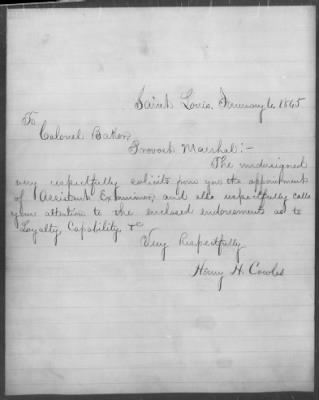 Saint Louis, January 6, 1865
To
Colonel Baker,
Provost Marshal:-
The undersigned
very respectfully solicits from you the appointment
of Assistant Examiner, and also respectfully calls
your attention to the enclosed endorsements as to
Loyalty, Capability, &c
Very Respectfully
Henry H. Cowles